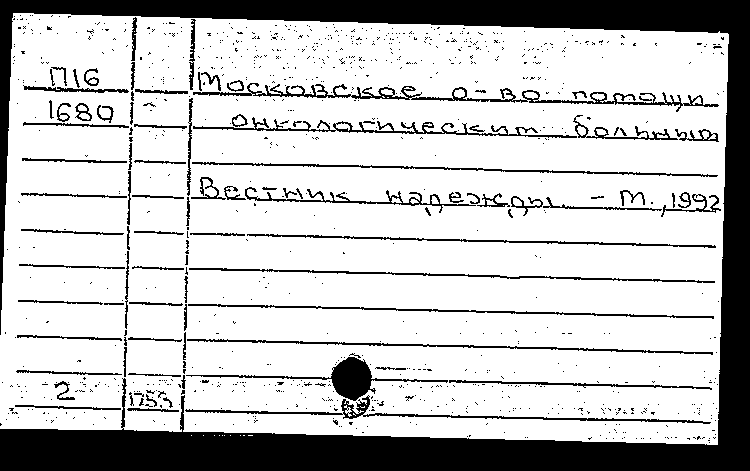 П16 Московское о-во помощи
1680 онкологическим больным
Вестник надежды. - М., 1992
2 1753